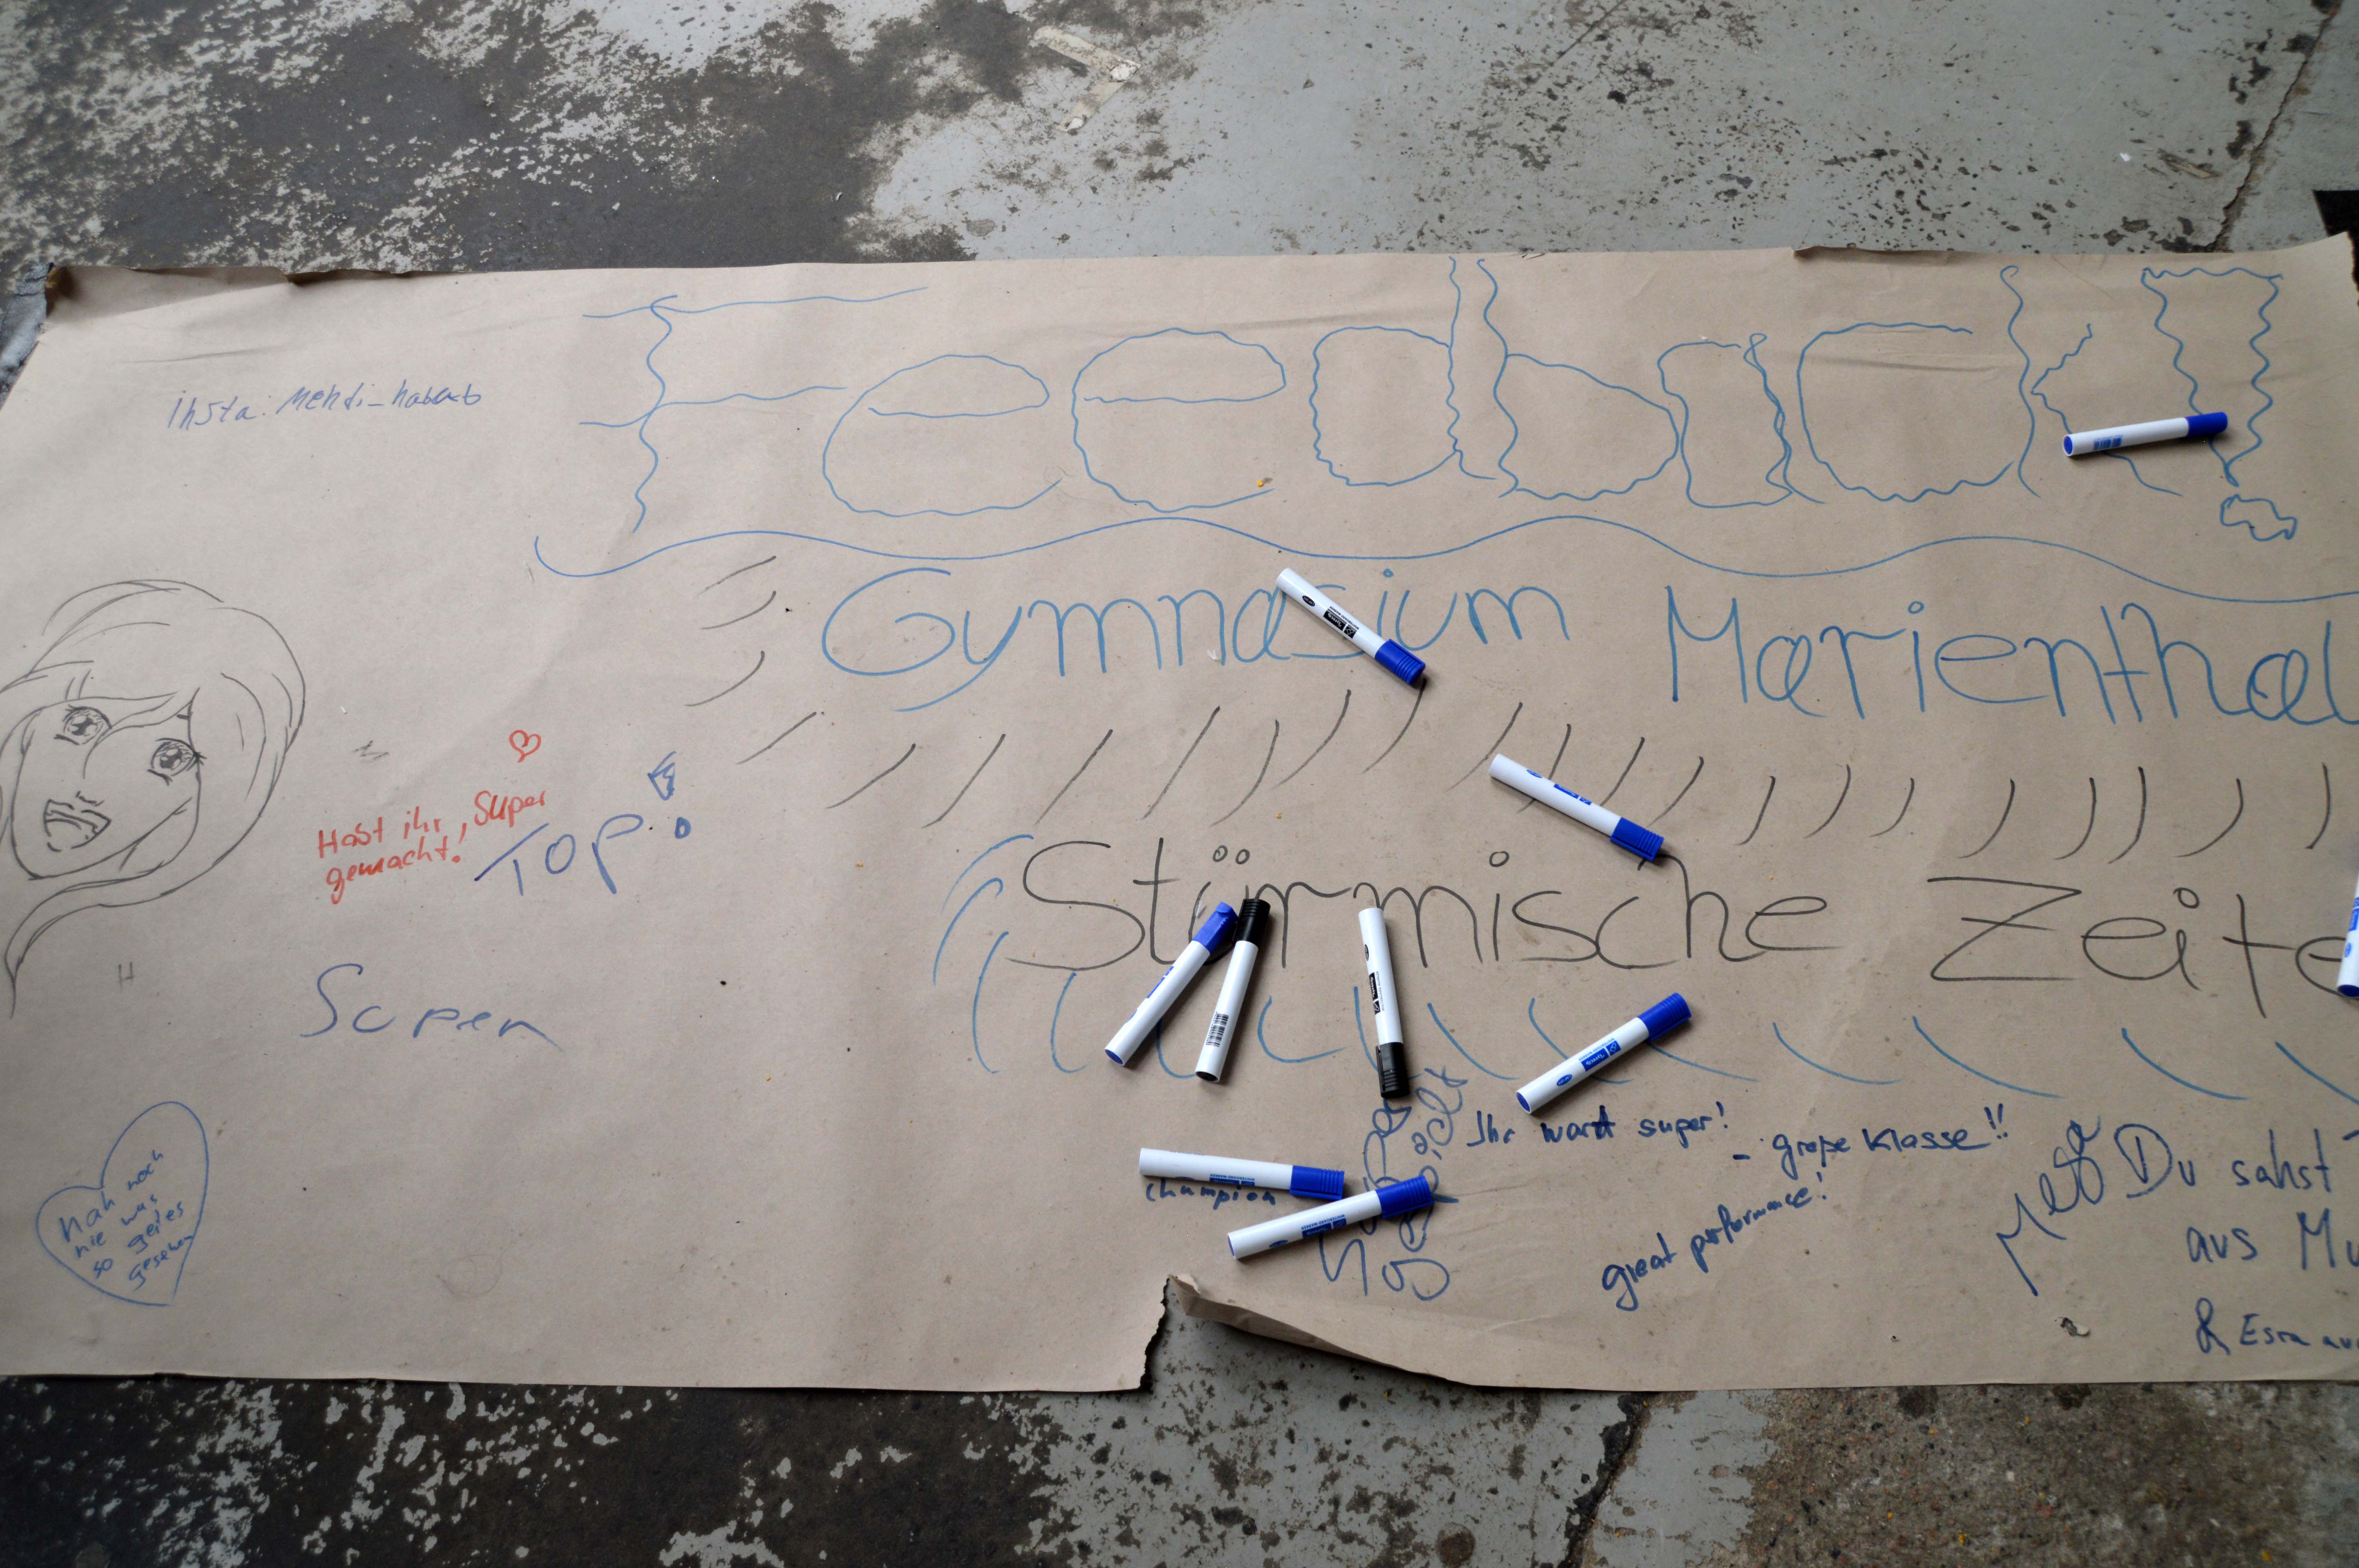 Feedback!
insta: Mehdi_
Gymnasium Marienthal
Stürmische Zeite
Habt ihr, super
gemacht!
TOP!
Super
Hab noch
nie was
so geiles
gesehen
Super
gespielt
champion
Ihr wart super!
- große Klasse!!
great performance!
Mega
Du sahst
aus Mu
& Esra au